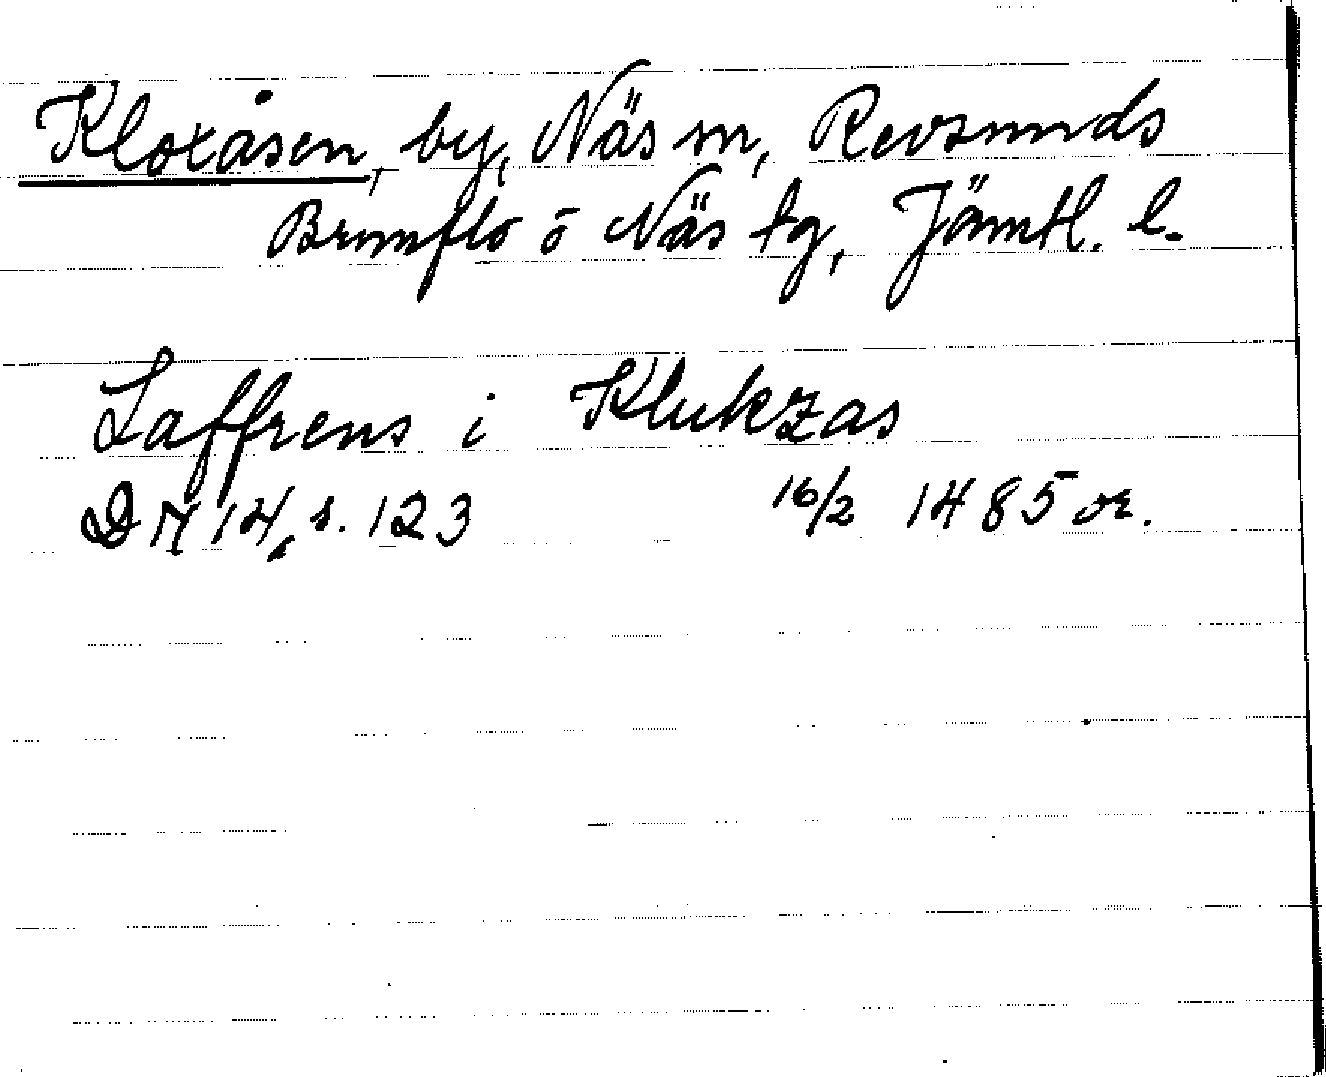 Kloxåsen, by, Näs sn, Revsunds
Brunflo o Näs tg, Jämtl. l.
Laffrens i Klukzas
DN 14, s. 123 16/2 1485 or.